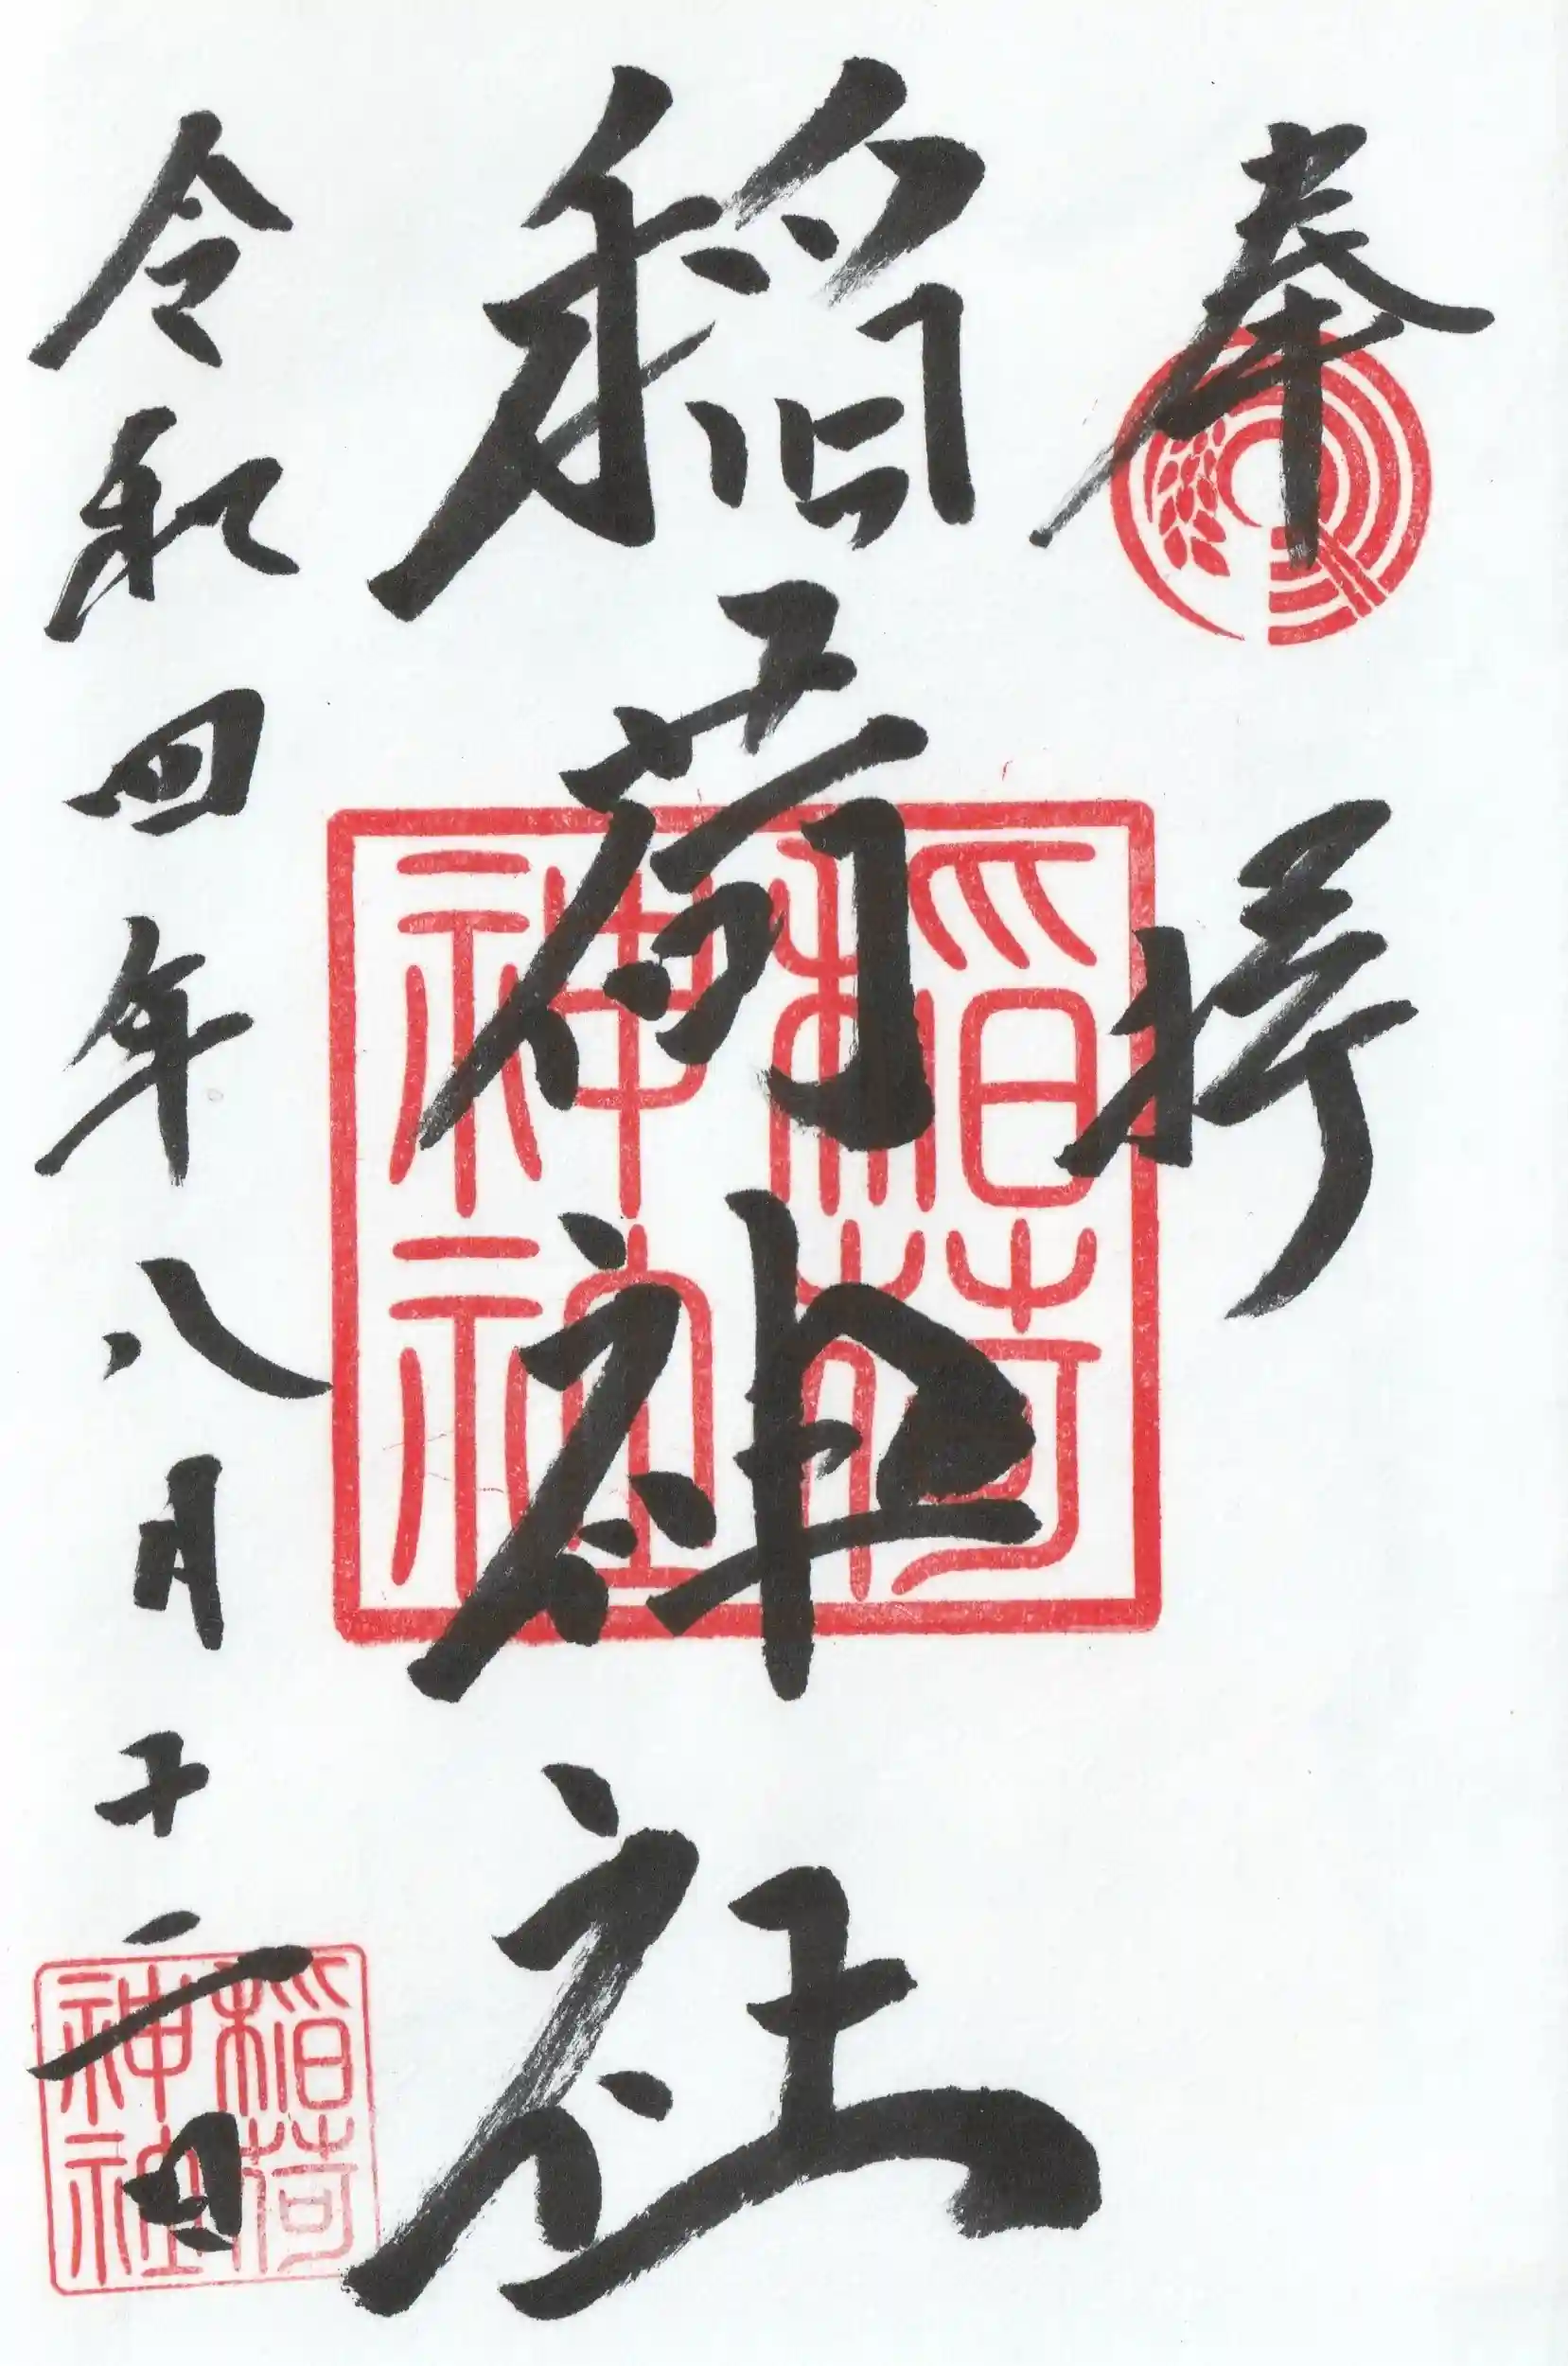 奉拝
稲荷神社
令和四年八月十二日
稲荷
神社
稲荷
神社